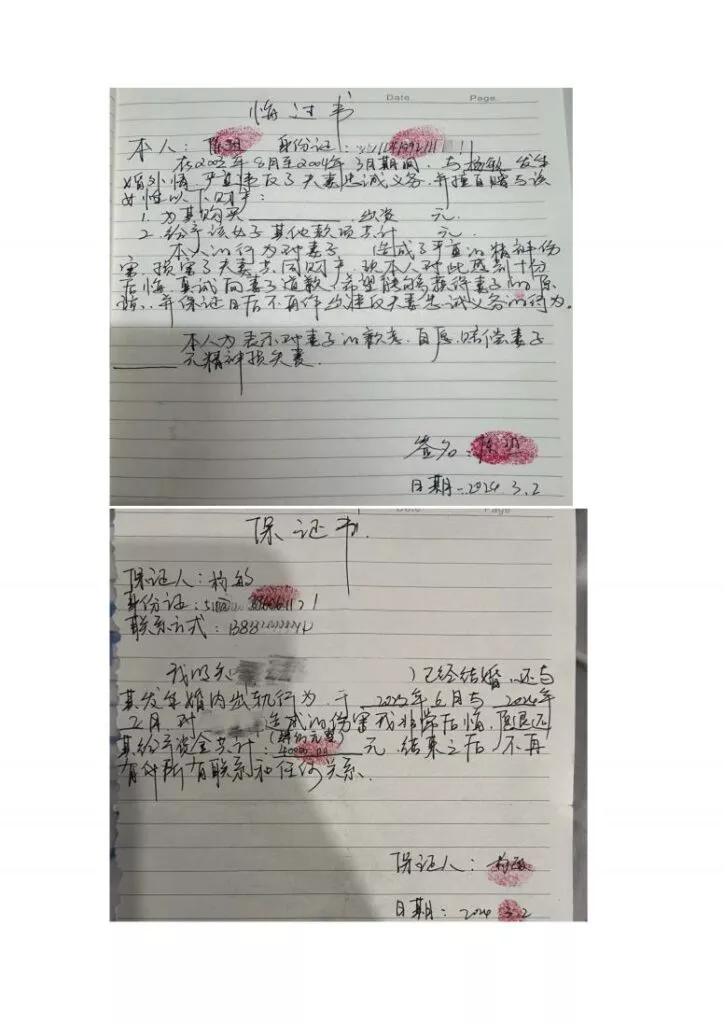 Date. Page.
悔过书
本人: 陈 身份证:
在2023年8月至2024年3月期间,与杨敏发生
婚外情,严重违反了夫妻忠诚义务,并擅自赠与该
女性以下财产:
1. 为其购买 ,出资 元.
2. 给予该女子其他款项共计 元.
本人的行为对妻子 造成了严重的精神伤
害,损害了夫妻共同财产,现本人对此感到十分
后悔,真诚向妻子道歉,希望能够获得妻子的原
谅,并保证日后不再作出违反夫妻忠诚义务的行为。
本人为表示对妻子的歉意,自愿赔偿妻子
元精神损失费.
签名:陈
日期:2024 3.2
Date Page
保证书.
保证人:杨敏
身份证:
联系方式:
我明知 )已经结婚,还与
其发生婚内出轨行为,于 2023年6月与 2024年
2月.对 造成的伤害我非常后悔,愿退还
其给予资金共计: (肆万元整)
40000.00 元,结束之后,不再
有任何联系和任何关系.
保证人:杨敏
日期:2024 3.2